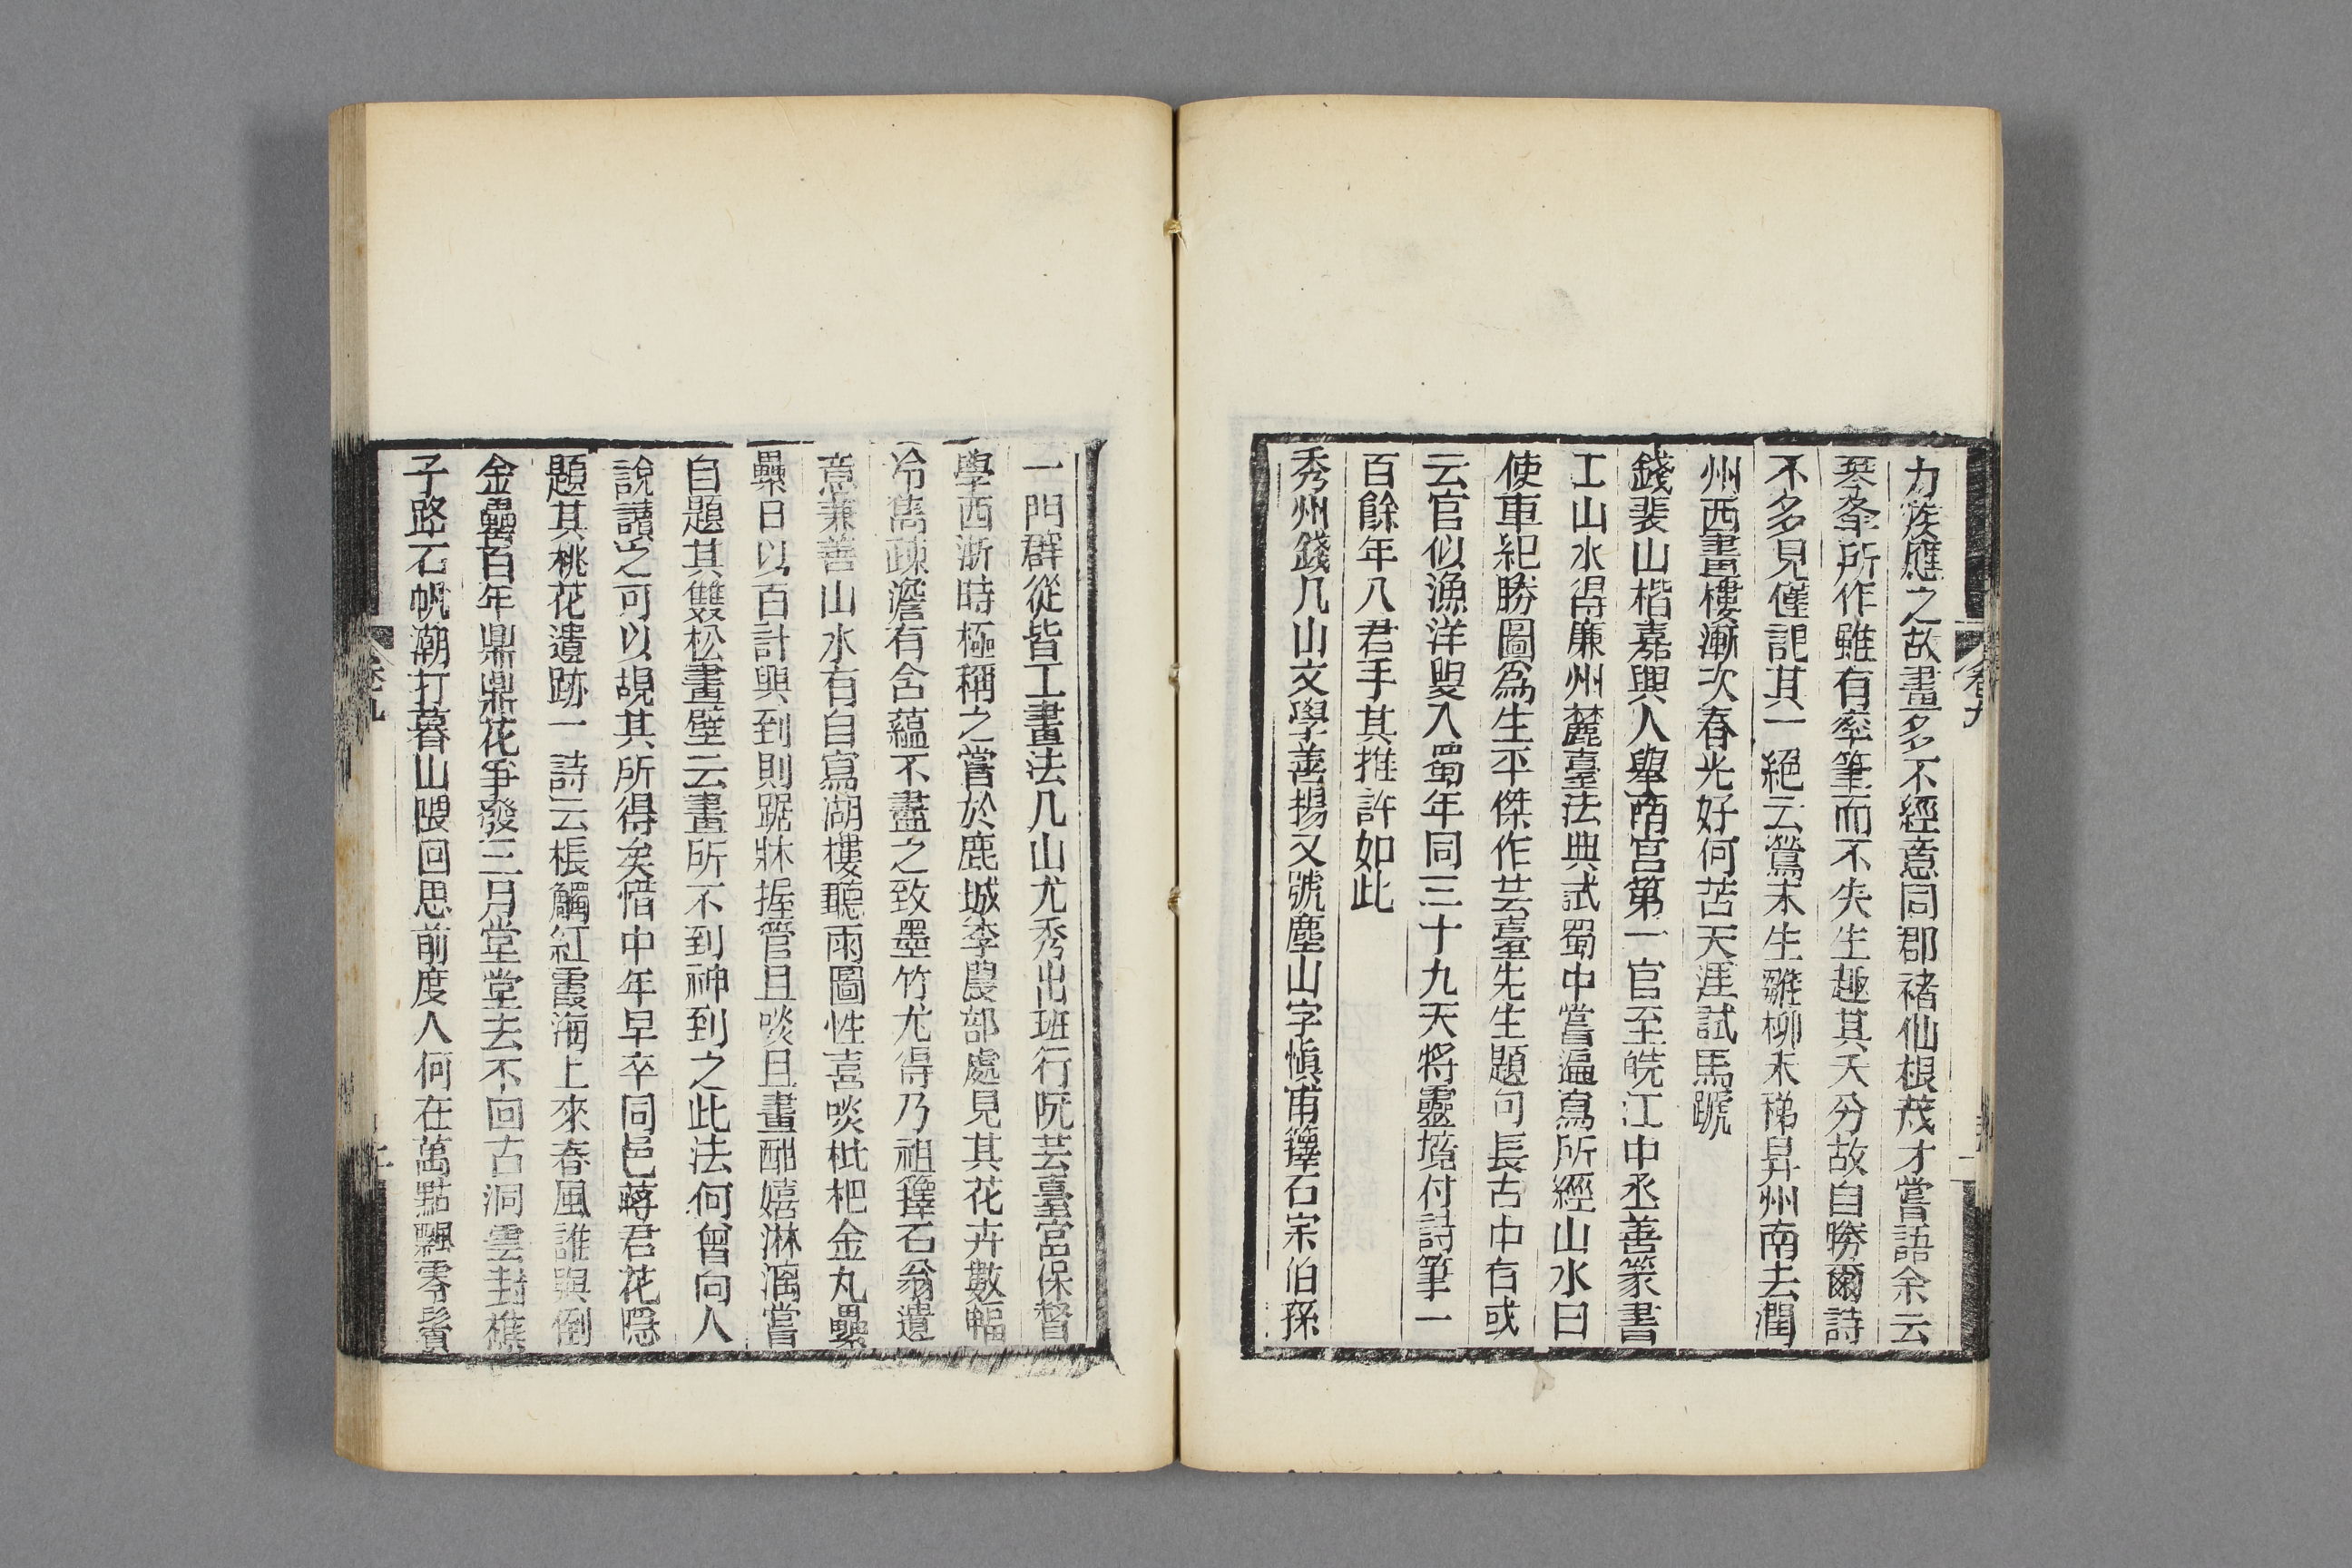 力疾應之故畫多不經意同郡褚仙根茂才嘗語余云
琴夆所作雖有率筆而不失生趣其天分故自勝爾詩
不多見僅記其一絕云鶯未生雛柳未稊昇州南去潤
州西畫樓漸次春光好何苦天涯試馬蹏
錢裴山楷嘉興人舉南宮第一官至皖江中丞善篆書
工山水得廉州麓臺法典試蜀中嘗遍寫所經山水曰
使車紀勝圖爲生平傑作芸臺先生題句長古中有或
云官似漁洋叟入蜀年同三十九天將靈境付詩筆一
百餘年八君手其推許如此
秀州錢几山文學善揚又號塵山字愼甫籜石宗伯孫
一門群從皆工畫法几山尤秀出班行阮芸臺宮保督
學西浙時極稱之嘗於鹿城李農部處見其花卉數幅
冷雋疎澹有含蘊不盡之致墨竹尤得乃祖籜石翁遺
意兼善山水有自寫湖樓聽雨圖性喜啖枇杷金丸纍
纍日以百計興到則踞牀握管且啖且畫酣嬉淋漓嘗
自題其雙松畫壁云畫所不到神到之此法何曾向人
說讀之可以覘其所得矣惜中年早卒同邑蔣君花隱
題其桃花遺跡一詩云棖觸紅霞海上來春風誰與倒
金罍百年鼎鼎花爭發三月堂堂去不回古洞雲封樵
子路石帆潮打暮山隈回思前度人何在萬點飄零鬢
卷九
卷九